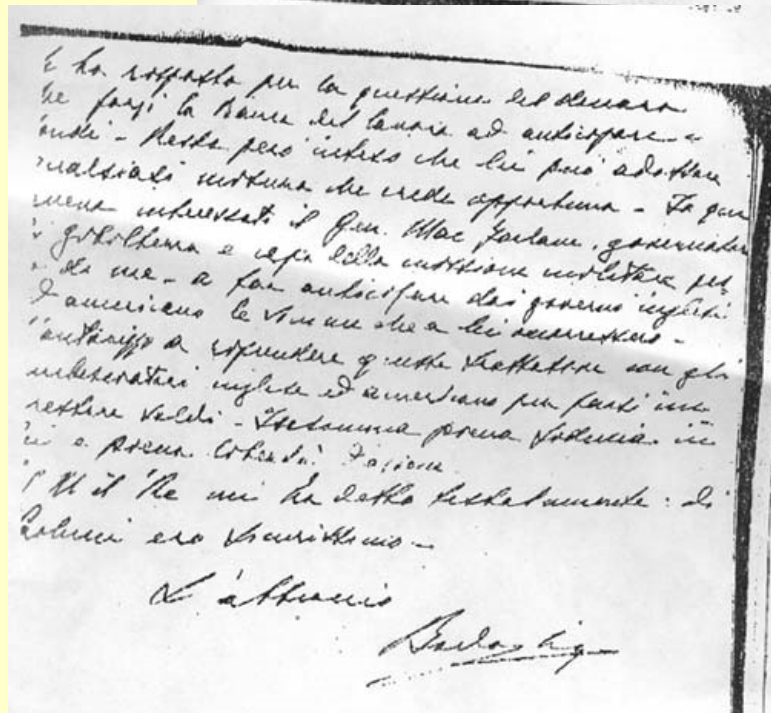 ha risposto per la questione del denaro
che forzi la Banca del Lavoro ad anticipare
fondi - Resta però inteso che lei può adottare
qualsiasi misura che crede opportuna - Io
interessati il Gen. Mac Farlane, governatore
di Gibilterra e capo della missione militare
da me - a far anticipare dai governi inglese
americano le somme che a lei occorressero -
autorizzo a riprendere queste trattative con gli
ambasciatori inglese ed americano per farsi
prestare soldi - Insomma piena fiducia in
lei e piena libertà d'azione
S M il Re mi ha detto testualmente: di
ero sicurissimo -
L'abbraccio
Badoglio